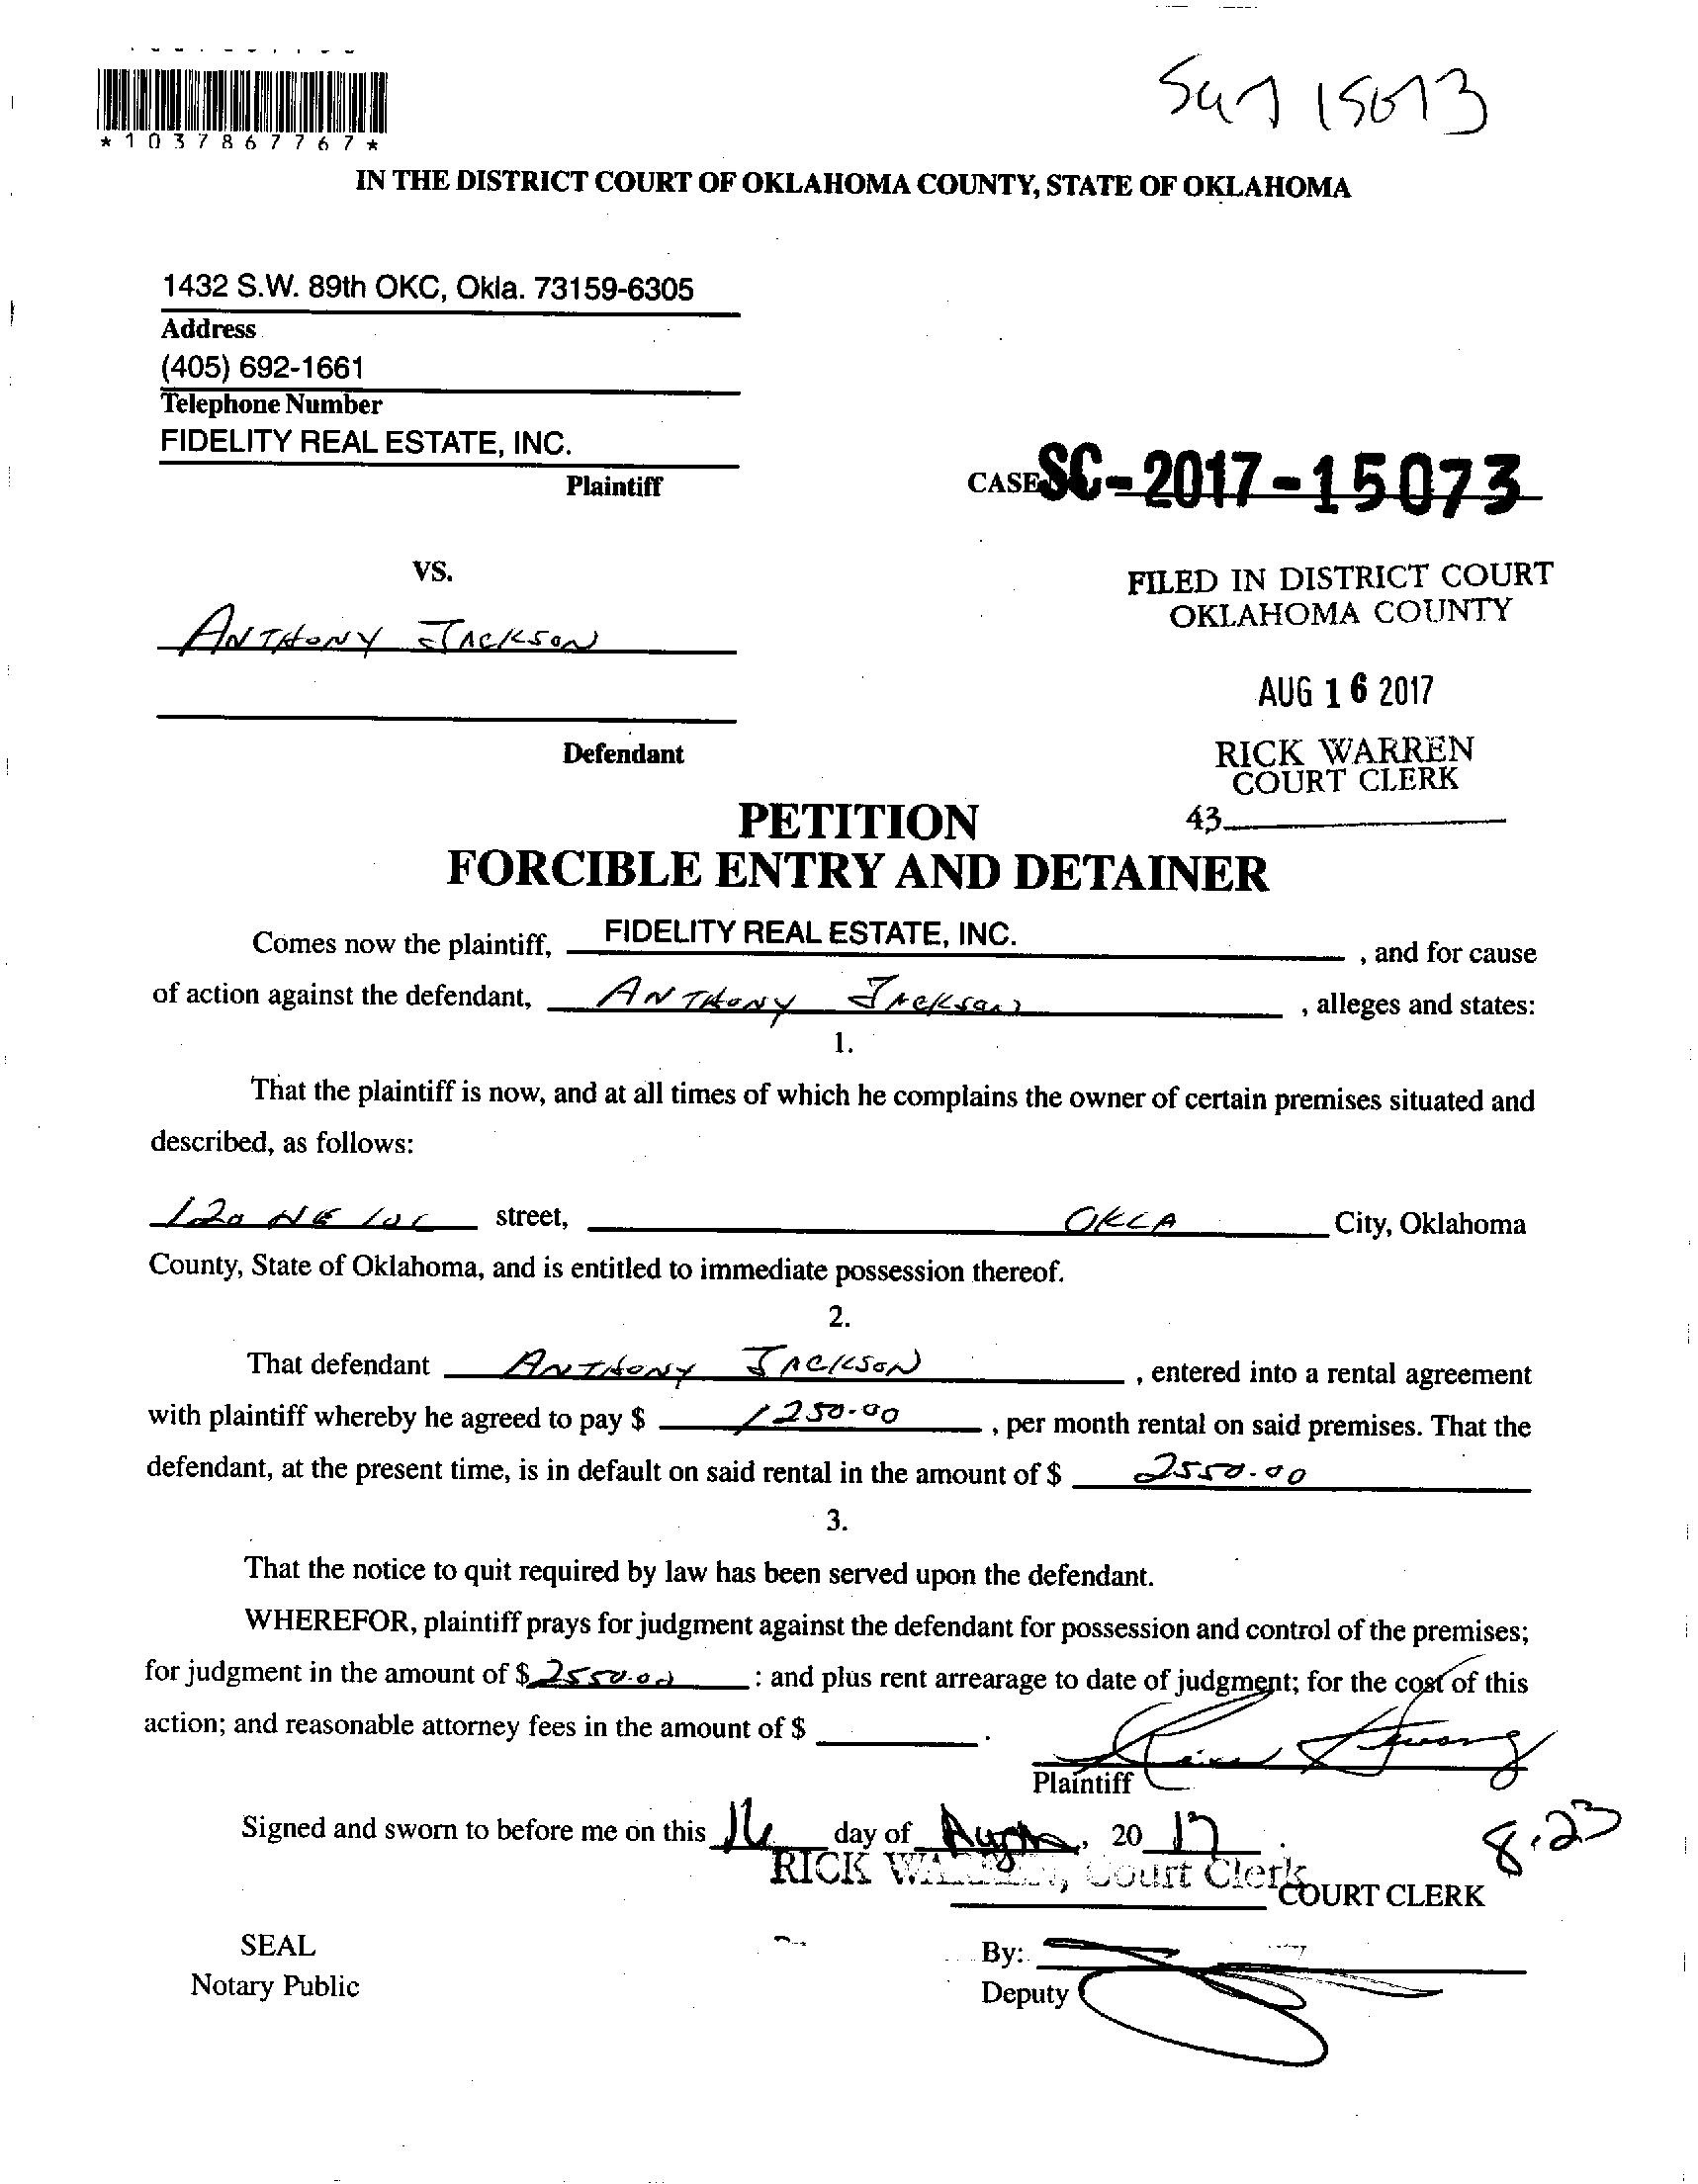 *1037867767*
15073
IN THE DISTRICT COURT OF OKLAHOMA COUNTY, STATE OF OKLAHOMA
1432 S.W. 89th OKC, Okla. 73159-6305
Address
(405) 692-1661
Telephone Number
FIDELITY REAL ESTATE, INC.
Plaintiff
CASE SC-2017-15073
VS.
FILED IN DISTRICT COURT
OKLAHOMA COUNTY
ANTHONY JACKSON
AUG 16 2017
Defendant
RICK WARREN
COURT CLERK
43
PETITION
FORCIBLE ENTRY AND DETAINER
Comes now the plaintiff, FIDELITY REAL ESTATE, INC. , and for cause
of action against the defendant, ANTHONY JACKSON , alleges and states:
1.
That the plaintiff is now, and at all times of which he complains the owner of certain premises situated and
described, as follows:
120 NE street, OKLA City, Oklahoma
County, State of Oklahoma, and is entitled to immediate possession thereof.
2.
That defendant ANTHONY JACKSON , entered into a rental agreement
with plaintiff whereby he agreed to pay $ 1250.00 , per month rental on said premises. That the
defendant, at the present time, is in default on said rental in the amount of $ 2550.00
3.
That the notice to quit required by law has been served upon the defendant.
WHEREFOR, plaintiff prays for judgment against the defendant for possession and control of the premises;
for judgment in the amount of $ 2550.00 : and plus rent arrearage to date of judgment; for the cost of this
action; and reasonable attorney fees in the amount of $ .
Plaintiff
Signed and sworn to before me on this 16 day of August, 20 17 .
8.23
RICK WARREN, Court Clerk
COURT CLERK
SEAL
By:
Notary Public
Deputy